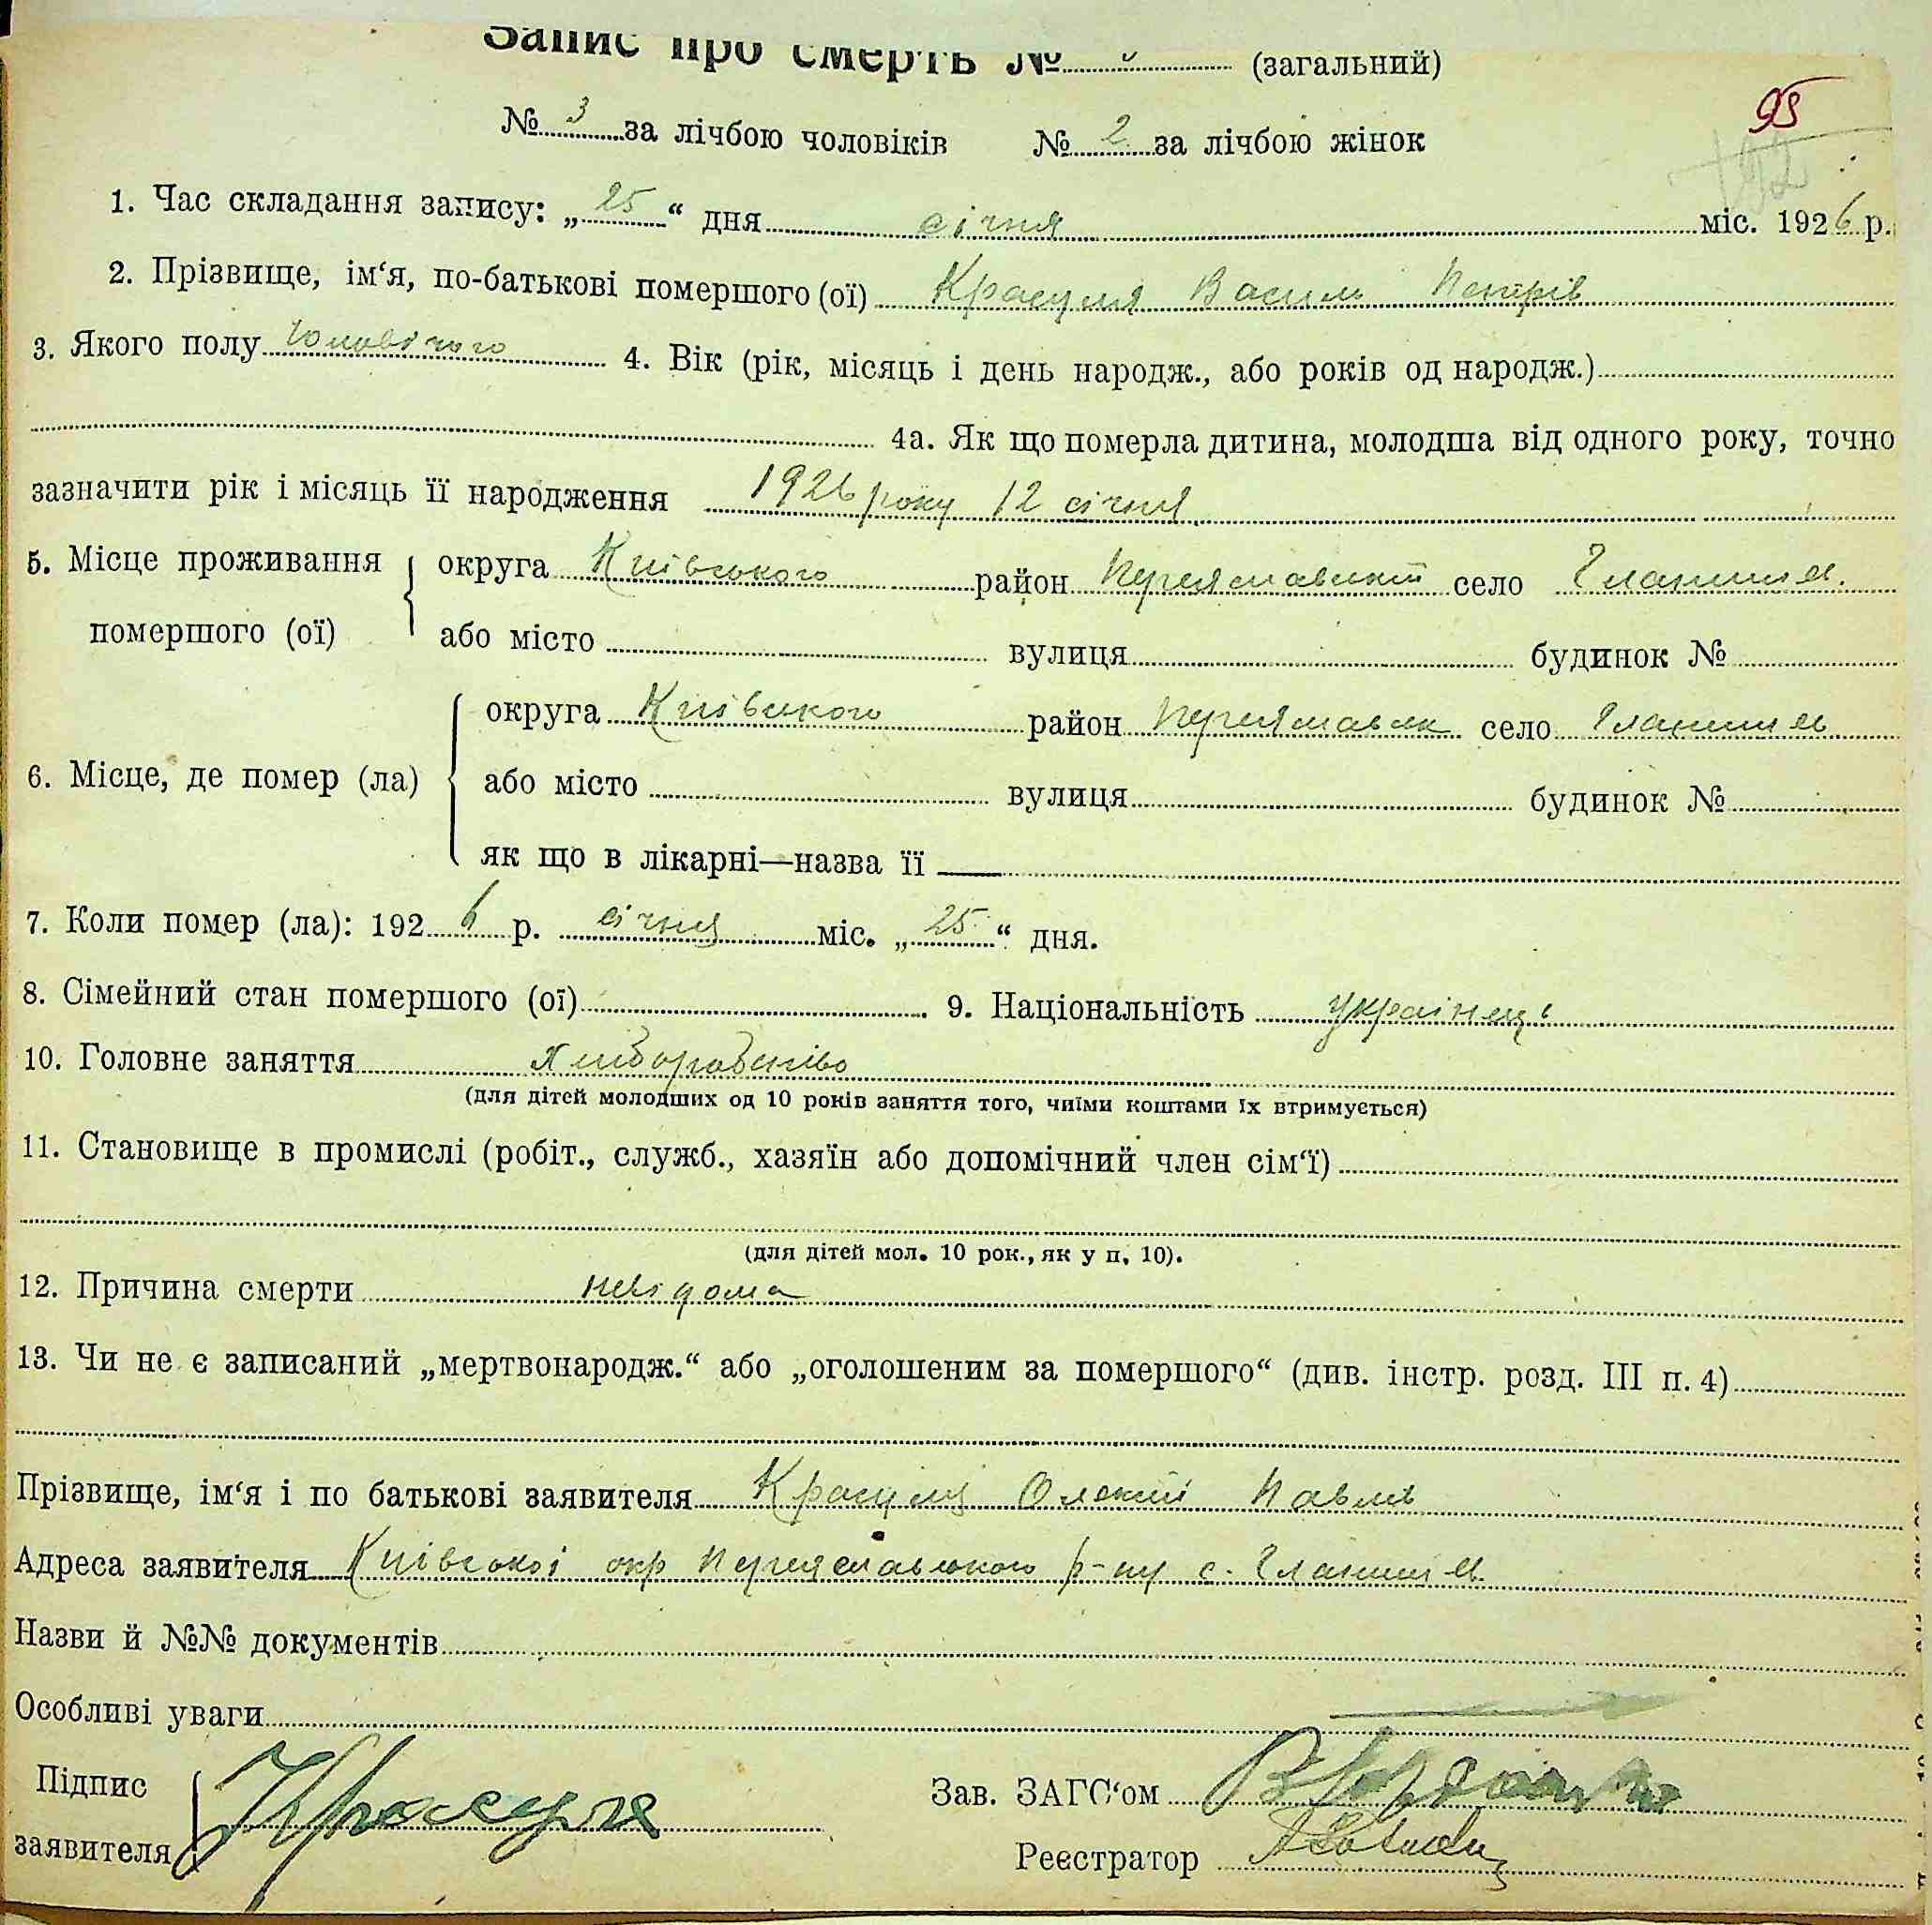 Запис про смерть № (загальний)
№ 3 за лічбою чоловіків № 2 за лічбою жінок
95
1. Час складання запису: „25“ дня січня міс. 1926 р.
2. Прізвище, ім‘я, по-батькові помершого (ої) Красуля Василь Петрів
3. Якого полу Чоловічого 4. Вік (рік, місяць і день народж., або років од народж.)
4а. Як що померла дитина, молодша від одного року, точно
зазначити рік і місяць її народження 1926 року 12 січня
5. Місце проживання округа Київського район Переяславський село Гланишів.
помершого (ої) або місто вулиця будинок №
округа Київського район Переяславськ село Гланишів
6. Місце, де помер (ла) або місто вулиця будинок №
як що в лікарні—назва її
7. Коли помер (ла): 1926 р. січня міс. „25“ дня.
8. Сімейний стан помершого (ої) 9. Національність українець
10. Головне заняття Хліборобство
(для дітей молодших од 10 років заняття того, чиїми коштами їх втримується)
11. Становище в промислі (робіт., служб., хазяїн або допомічний член сім‘ї)
(для дітей мол. 10 рок., як у п. 10).
12. Причина смерти невідома
13. Чи не є записаний „мертвонародж.“ або „оголошеним за помершого“ (див. інстр. розд. III п. 4)
Прізвище, ім‘я і по батькові заявителя Красуля Олексій Павлів
Адреса заявителя Київської окр Переяславського р-ну с. Гланишів
Назви й №№ документів
Особливі уваги
Підпис
заявителя Красуля
Зав. ЗАГС‘ом
Реєстратор